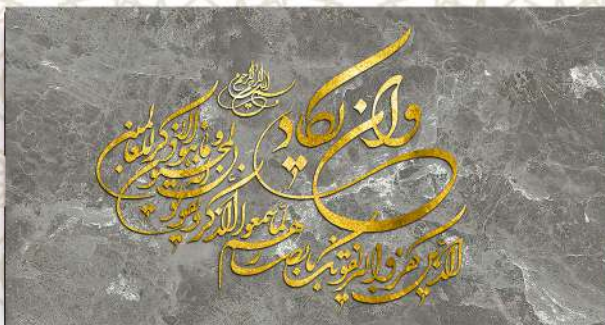 بسم الله الرحمن الرحيم
وان يكاد
الذين كفروا ليزلقونك بابصارهم
لما سمعوا الذكر ويقولون
انه لمجنون
وما هو الا ذكر للعالمين